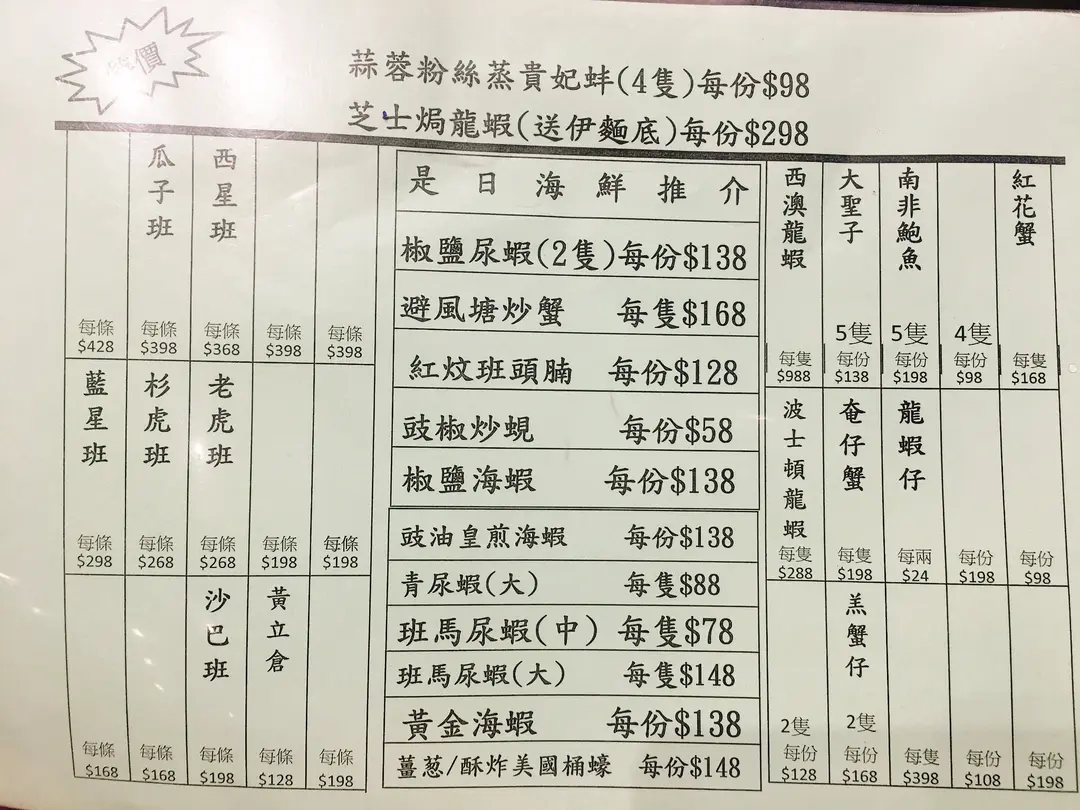 價
蒜蓉粉絲蒸貴妃蚌(4隻)每份$98
芝士焗龍蝦(送伊麵底)每份$298
每條
$428
瓜子班
每條
$398
西星班
每條
$368
每條
$398
每條
$398
藍星班
每條
$298
杉虎班
每條
$268
老虎班
每條
$268
每條
$198
每條
$198
每條
$168
每條
$168
沙巴班
每條
$198
黃立倉
每條
$128
每條
$198
是日海鮮推介
椒鹽尿蝦(2隻)每份$138
避風塘炒蟹 每隻$168
紅炆班頭腩 每份$128
豉椒炒蜆 每份$58
椒鹽海蝦 每份$138
豉油皇煎海蝦 每份$138
青尿蝦(大) 每隻$88
班馬尿蝦(中) 每隻$78
班馬尿蝦(大) 每隻$148
黃金海蝦 每份$138
薑葱/酥炸美國桶蠔 每份$148
西澳龍蝦
每隻
$988
大聖子
5隻
每份
$138
南非鮑魚
5隻
每份
$198
4隻
每份
$98
紅花蟹
每隻
$168
波士頓龍蝦
每隻
$288
奄仔蟹
每隻
$198
龍蝦仔
每兩
$24
每份
$198
每份
$98
2隻
每份
$128
羔蟹仔
2隻
每份
$168
每隻
$398
每份
$108
每份
$198